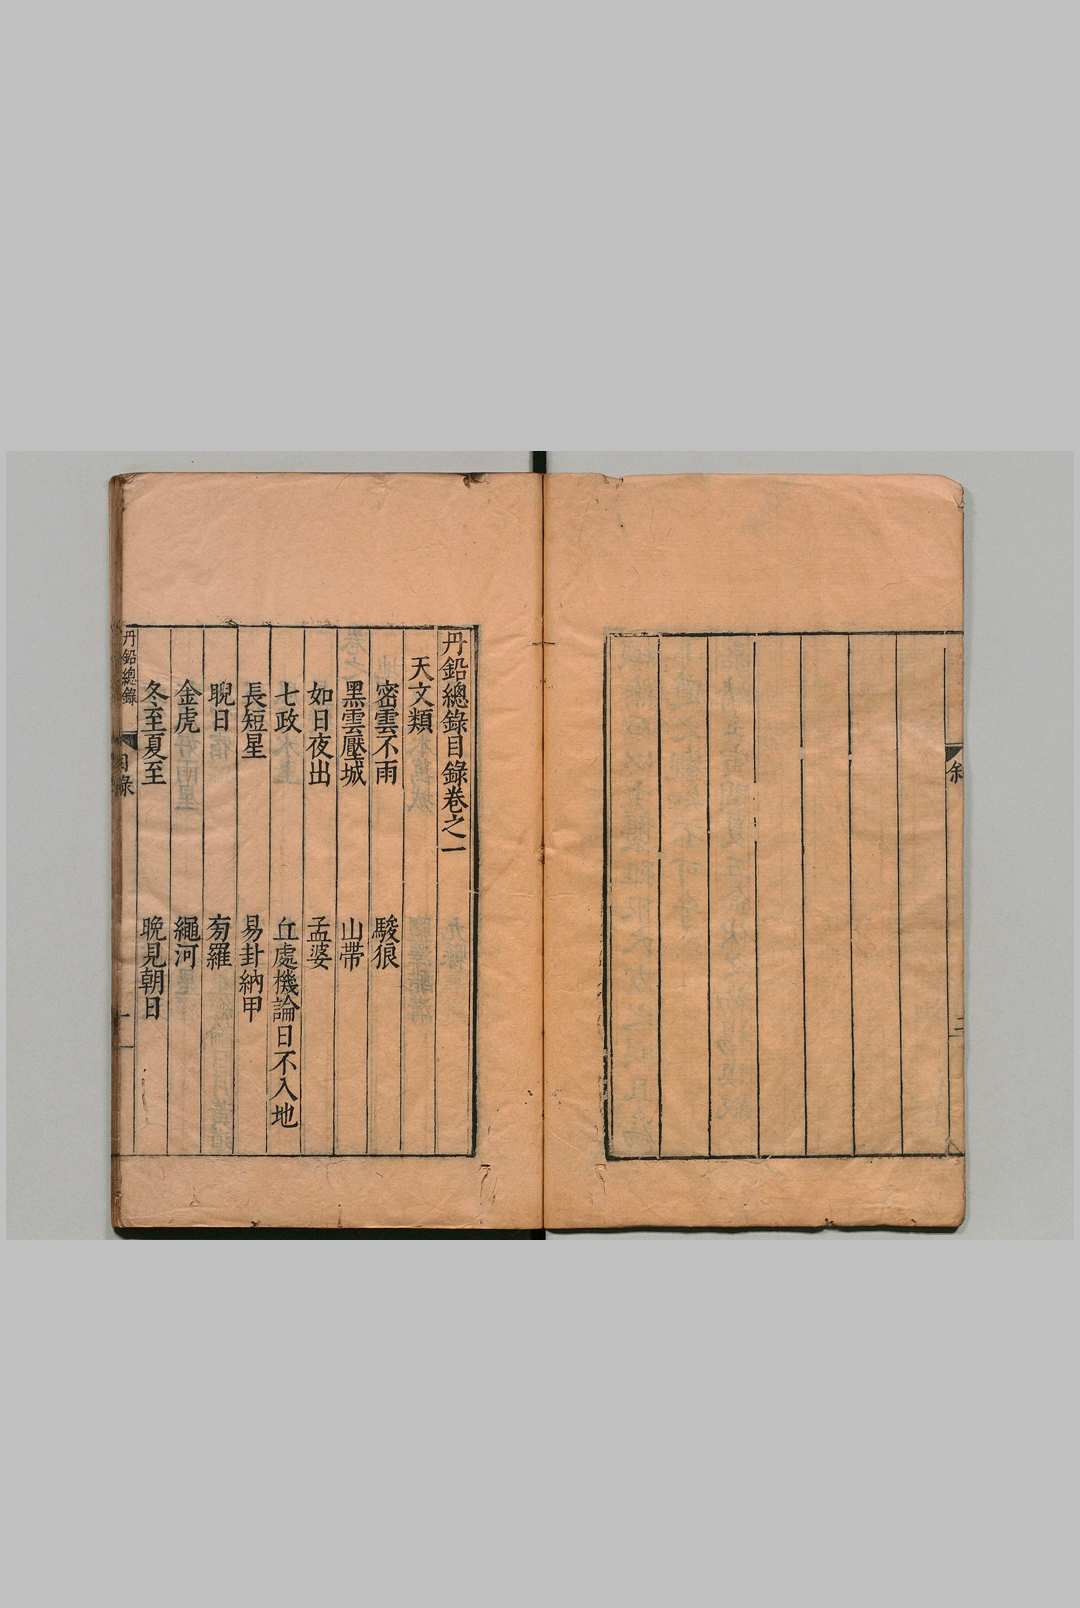 敘
二
丹鉛總錄目錄卷之一
天文類
密雲不雨 駿狼
黑雲壓城 山帶
如日夜出 孟婆
七政 丘處機論日不入地
長短星 易卦納甲
晲日 㓛羅
金虎 繩河
冬至夏至 晩見朝日
丹鉛總錄
目錄
一